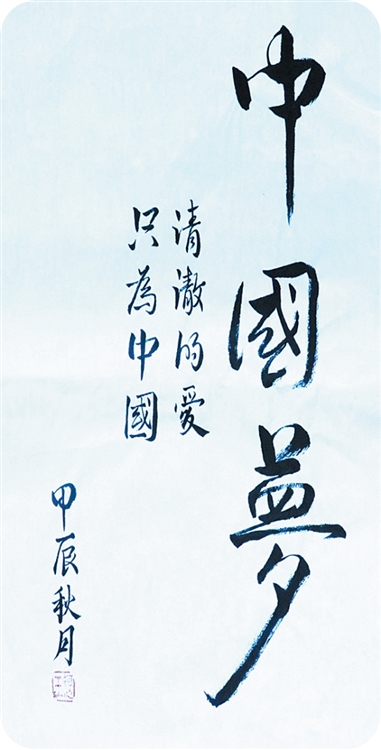 中國夢
清澈的愛
只為中國
甲辰秋月